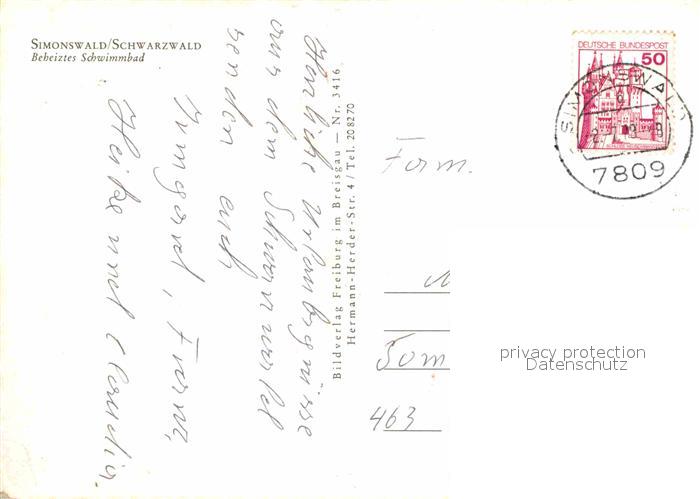 SIMONSWALD/SCHWARZWALD
Beheiztes Schwimmbad
Herzliche Urlaubsgrüsse
aus dem Schwarzwald
senden euch
Irmgard, Franz,
Heike und Claudia.
Bildverlag Freiburg im Breisgau — Nr. 3416
Hermann-Herder-Str. 4 / Tel. 208270
DEUTSCHE BUNDESPOST
50
SIMONSWALD
7809
Fam.
463
privacy protection
Datenschutz